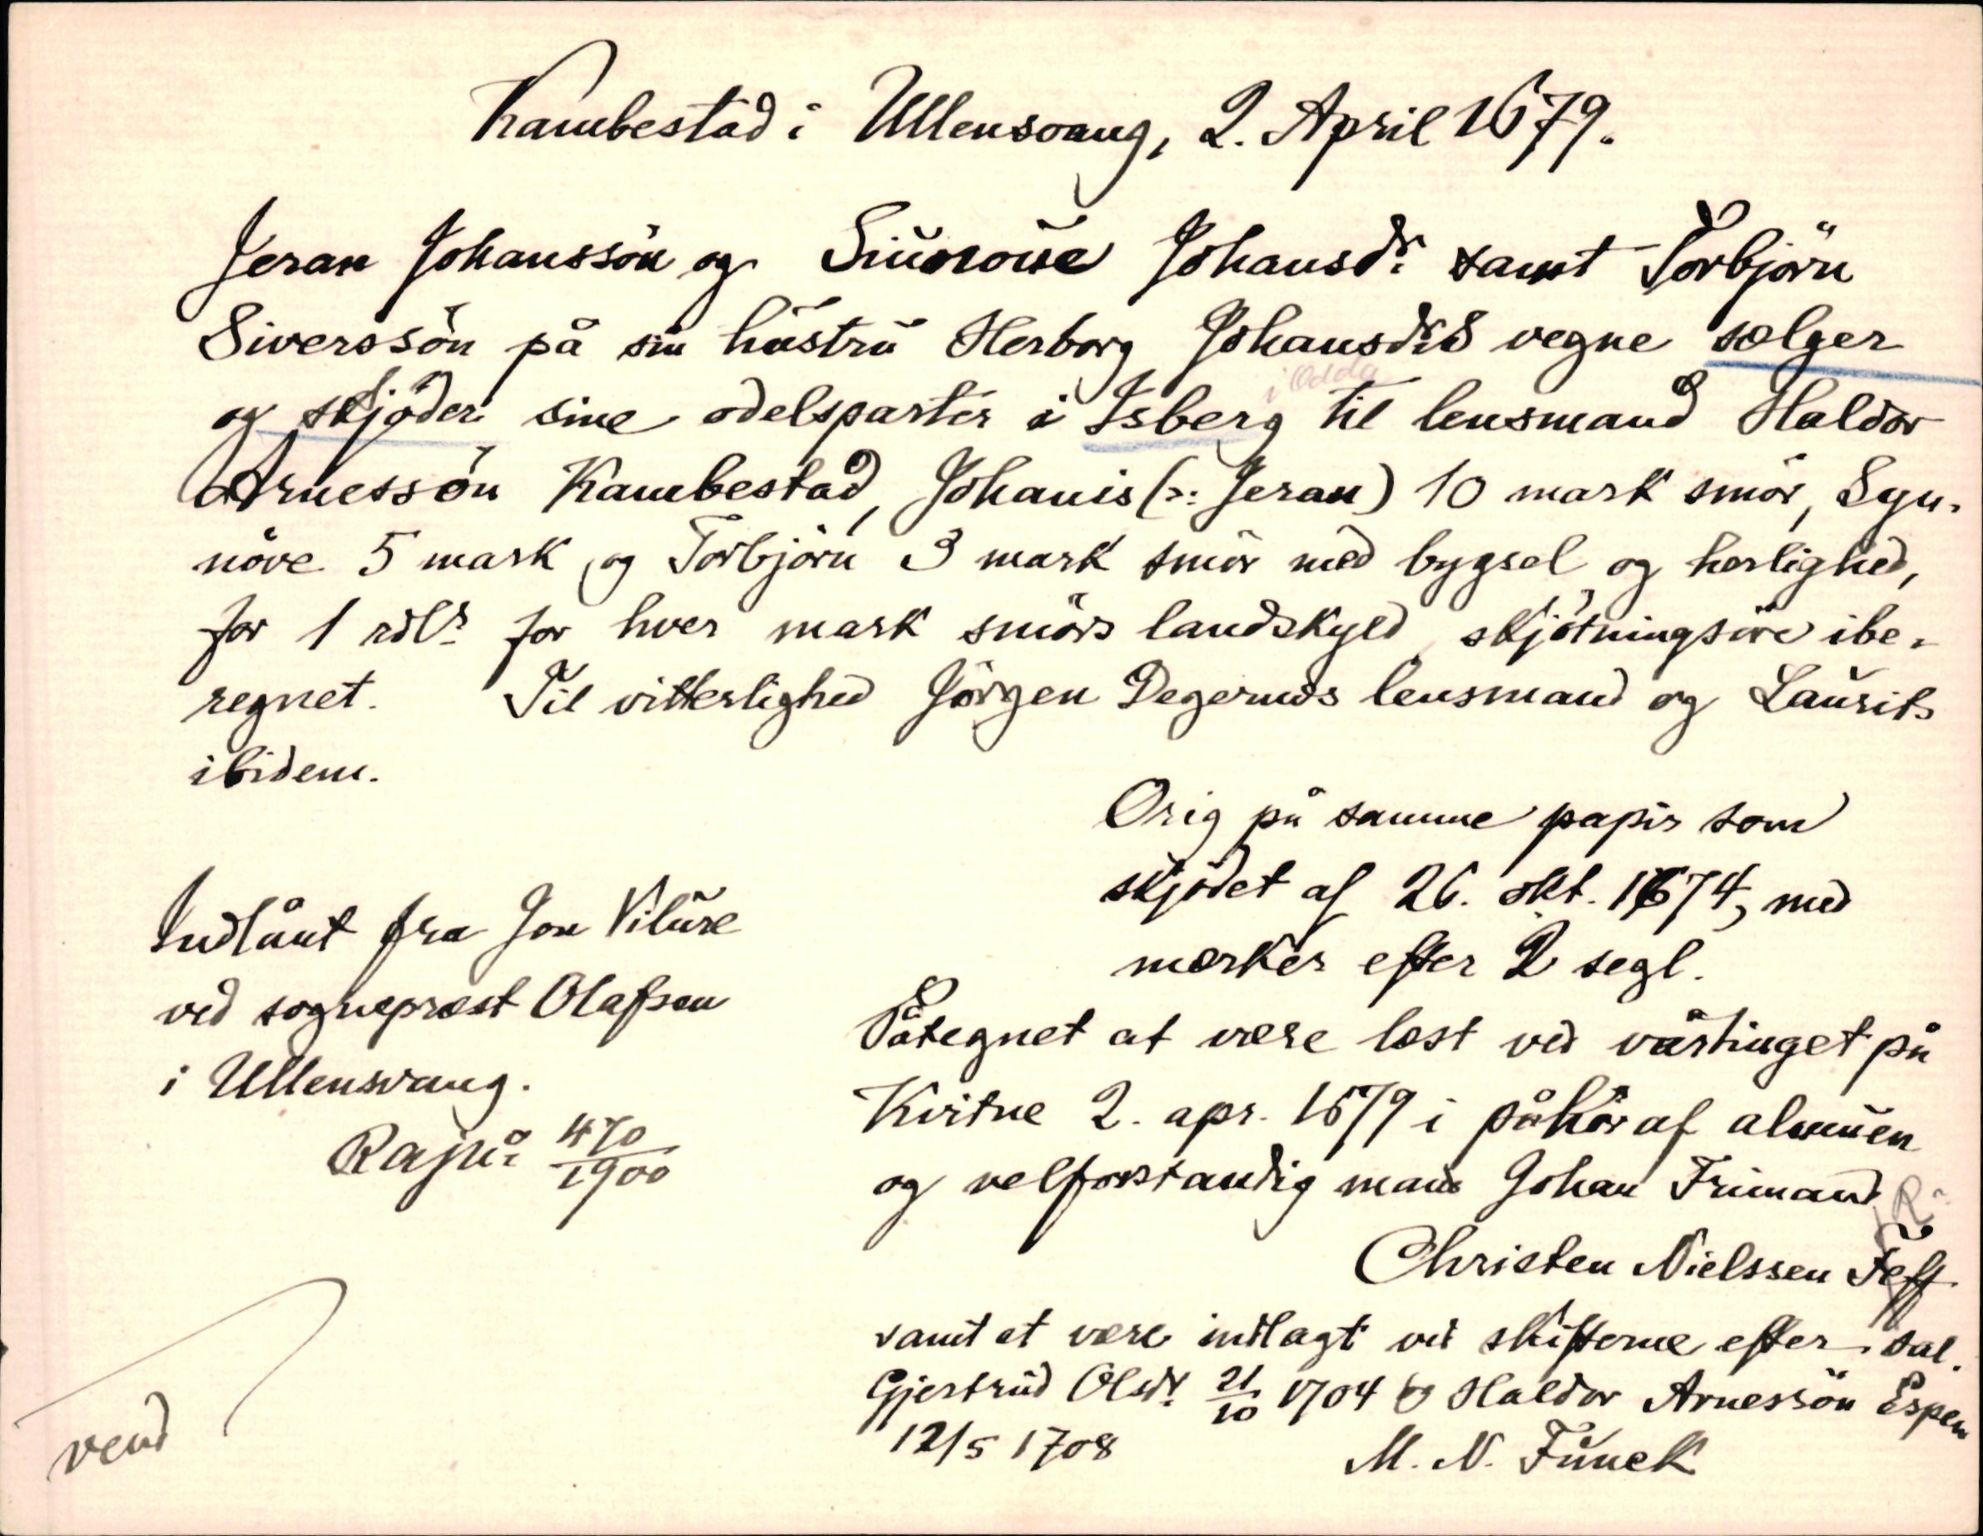 Kambestad i Ullensvang, 2. April 1679.
Jeran Johanssön og Siunoue Johansdr. samt Torbjörn
Siverssön på sin hustru Herborg Johansdrs vegne sælger
i Odda
og skjöder sine odelsparter i Isberg til lensmand Haldor
Arnessön Kambestad, Johanis (ɔ: Jeran) 10 mark smör, Syn-
növe 5 mark og Torbjörn 3 mark smör med bygsel og herlighed,
for 1 rdlr. for hver mark smörs landskyld, skjötningsöre ibe-
regnet. Til vitterlighed Jörgen Degernes lensmand og Laurits
ibidem.
Orig på samme papir som
skjödet af 26. okt. 1674, med
mærker efter 2 segl.
Indlånt fra Jon Vilure
ved sogneprest Olafsen
i Ullensvang.
Rajnr. 470/1900
Påtegnet at være læst ved vårtinget på
Kvitne 2. apr. 1679 i påhör af almuen
og velforstandig mand Johan Frimand
R.
Christen Nielssen Feff
samt at være indlagt ved skifterne efter sal.
Gjertrud Olsdr. 21/10 1704 & Haldor Arnessön Espen
12/5 1708
M. N. Funck
vend